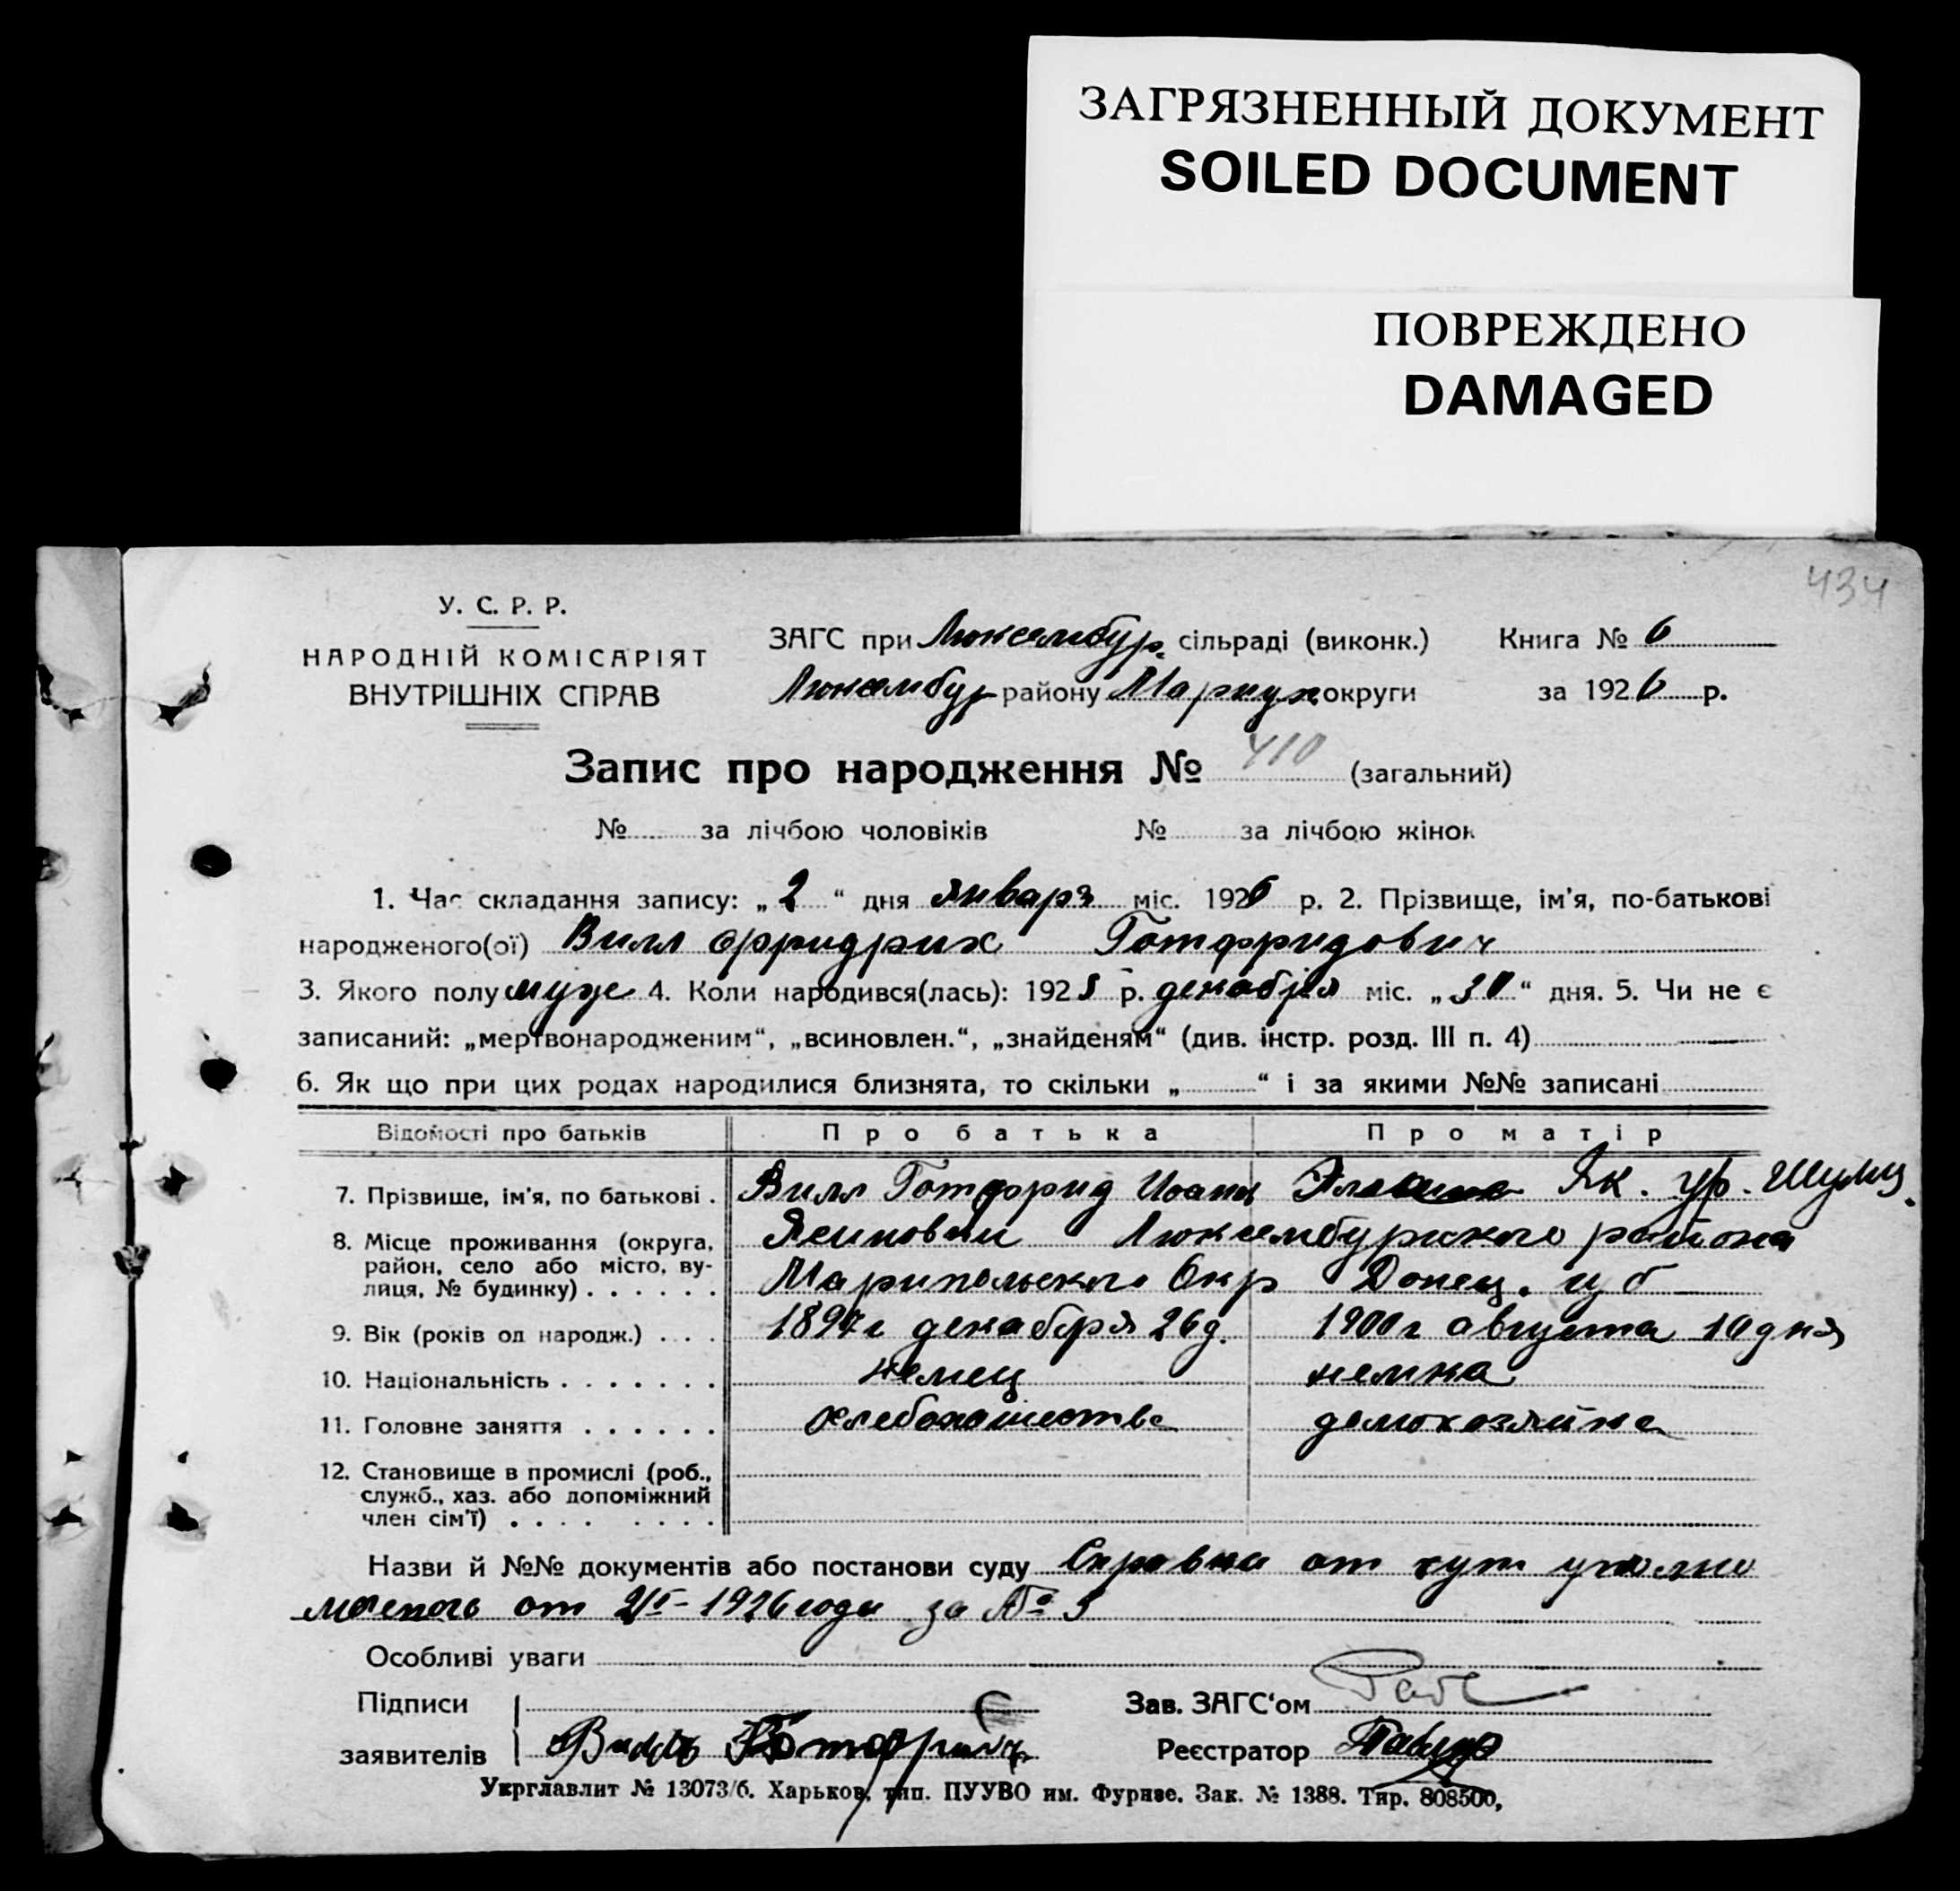 ЗАГРЯЗНЕННЫЙ ДОКУМЕНТ
SOILED DOCUMENT
ПОВРЕЖДЕНО
DAMAGED
434
У. С. Р. Р.
НАРОДНІЙ КОМІСАРІЯТ
ВНУТРІШНІХ СПРАВ
ЗАГС при Люксембур. сільраді (виконк.) Книга № 6
Люксембур району Мариуп. округи за 1926 р.
Запис про народження № 410 (загальний)
№ за лічбою чоловіків № за лічбою жінок
1. Час складання запису: „2“ дня января міс. 1926 р. 2. Прізвище, ім'я, по-батькові
народженого(ої) Вилл Фридрих Готфридович
3. Якого полу муж 4. Коли народився(лась): 1925 р. декабря міс. „30“ дня. 5. Чи не є
записаний: „мертвонародженим“, „всиновлен.“, „знайденям“ (див. інстр. розд. III п. 4)
6. Як що при цих родах народилися близнята, то скільки „ “ і за якими №№ записані
Відомості про батьків Про батька Про матір
7. Прізвище, ім'я, по батькові . Вилл Готфрид Иоанн Як. ур. Шульц
8. Місце проживання (округа, район, село або місто, вулиця, № будинку) . . . . . . Люксембургского района
Мариупольского Окр Донец. губ
9. Вік (років од народж.) . . . декабря 26 д. 1900 г августа 10 дня
10. Національність . . . . . . . немец немка
11. Головне заняття . . . . . . хлебопашество домохозяйка
12. Становище в промислі (роб.,
служб., хаз. або допоміжний
член сім'ї) . . . . . . . .
Назви й №№ документів або постанови суду Справка от хут уполно
моченого от 2/I-1926 года за № 5
Особливі уваги
Підписи Зав. ЗАГС'ом
заявителів Вилль Реєстратор
Укрглавлит № 13073/б. Харьков, тип. ПУУВО им. Фурнзе. Зак. № 1388. Тир. 808500,